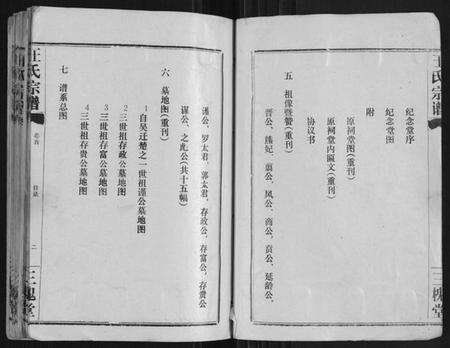 王氏宗谱
三槐堂
纪念堂序
纪念堂图
附
原祠堂图(重刊)
原祠堂内匾文(重刊)
协议书
五 祖像暨赞(重刊)
晋公、陈妃、震公、凤公、商公、贞公、延龄公、
谨公、罗太君、郭太君、存政公、存富公、存贵公
谨公、之此公(共十五幅)
六 墓地图(重刊)
1自吴迁楚之一世祖谨公墓地图
2三世祖存政公墓地图
3三世祖存富公墓地图
4三世祖存贵公墓地图
七 谱系总图
王氏宗谱
卷首
目录
二
三槐堂